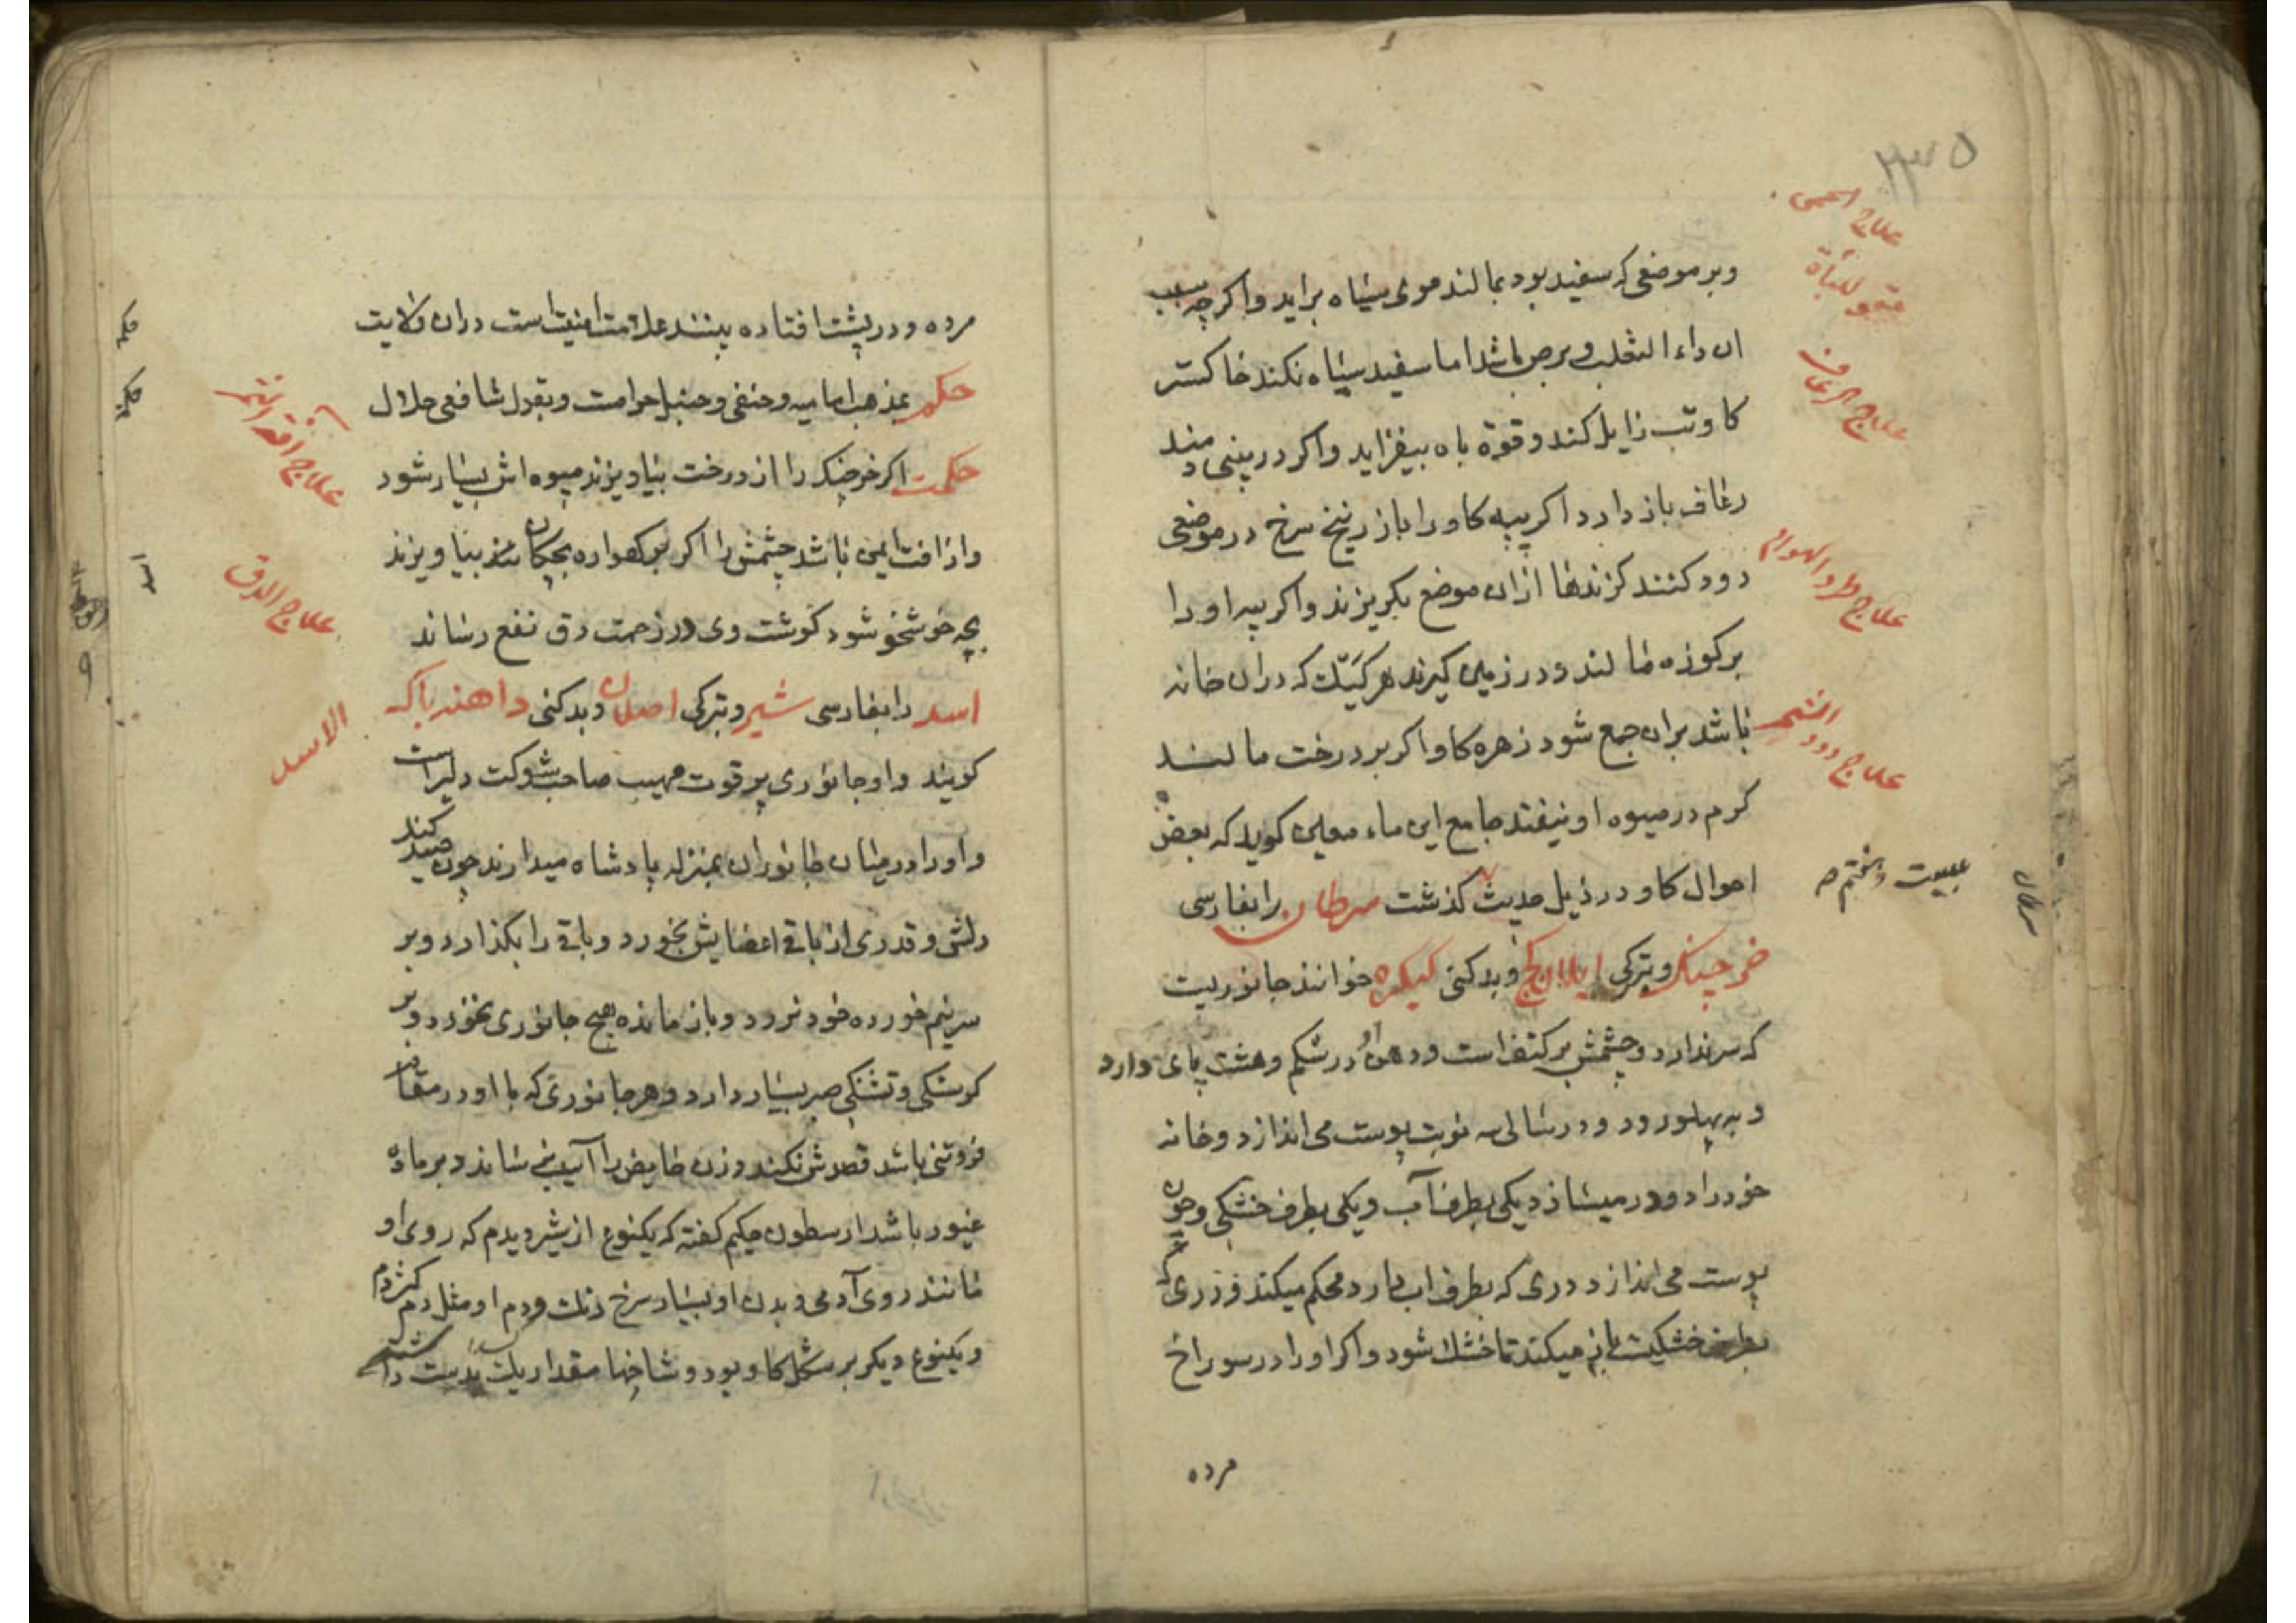 ۲۳۵
علاج الحمی
مقوی للباة
علاج الرعاف
علاج طرد الهوام
علاج دود الشجر
وبر موضعی که سفید بود بمالند موی سیاه براید واکرچه سبب
ان داء الثعلب و برص باشد اما سفید سیاه نکند خاکستر
کاو تب زایل کند و قوة باه بیفزاید واکر در بینی دمند
رعاف باز دارد اکر پیه کاو را باز زنیخ سرخ در موضعی
دود کنند کزندها ازان موضع بکریزند واکر پیه او را
بر کوزه مالند و در زمین کیرند هر کیک که دران خانه
باشد بران جمع شود زهره کاو اکر بر درخت مالند
کرم در میوه او نیفتد جامع این ماء معین کوید که بعض
احوال کاو در ذیل حدیث کذشت سرطان را بفارسی
خرچنک و بترکی و بدکنی کیکره خوانند جانوریست
که سر ندارد و چشمش بر کتف است و دهن او در شکم و هشت پای دارد
و به پهلو رود و در سالی سه نوبت پوست می اندازد و خانه
خود را دو در میسازد یکی بطرف آب و یکی بطرف خشکی و چون
پوست می اندازد دری که بطرف اب دارد محکم میکند و دری که
بطرف خشکیست باز میکند تا خشک شود واکر او را در سوراخ
مرده
سرطان
مرده و در پشت افتاده بینند علامت امنیت است دران ولایت
حکم بمذهب امامیه و حنفی و حنبلی حرامست و بقول شافعی حلال
حکمت اکر خرچنک را از درخت بیاویزند میوه اش بسیار شود
واز افت ایمن باشد چشمش را اکر بر کهواره بچکان بیاویزند
بچه خوشخو شود کوشت وی در زحمت دق نفع رساند
اسد را بفارسی شیر و بترکی اصلان و بدکنی باکه
کویند و او جانوری پر قوت مهیب صاحب شوکت دلیر است
و او را در میان جانوران بمنزله پادشاه میدارند چون صید کند
دلش و قدری از باقی اعضایش بخورد و باقی را بکذارد و بر
سر نیم خورده خود نرود و باز مانده هیچ جانوری نخورد و بر
کرسنکی و تشنکی صبر بسیار دارد و هر جانوری که با او در مقام
فروتنی باشد قصدش نکند و زن حایض را آسیب نرساند و بر ماده
غیور باشد ارسطون حکیم کفته که یکنوع از شیر دیدم که روی او
مانند روی آدمی و بدن او بسیار سرخ رنک و دم او مثل دم کژدم
و یکنوع دیکر بر شکل کاو بود و شاخها مقدار یک بدست داشت
علاج الدق
الاسد
حکم
حکمة
اسد